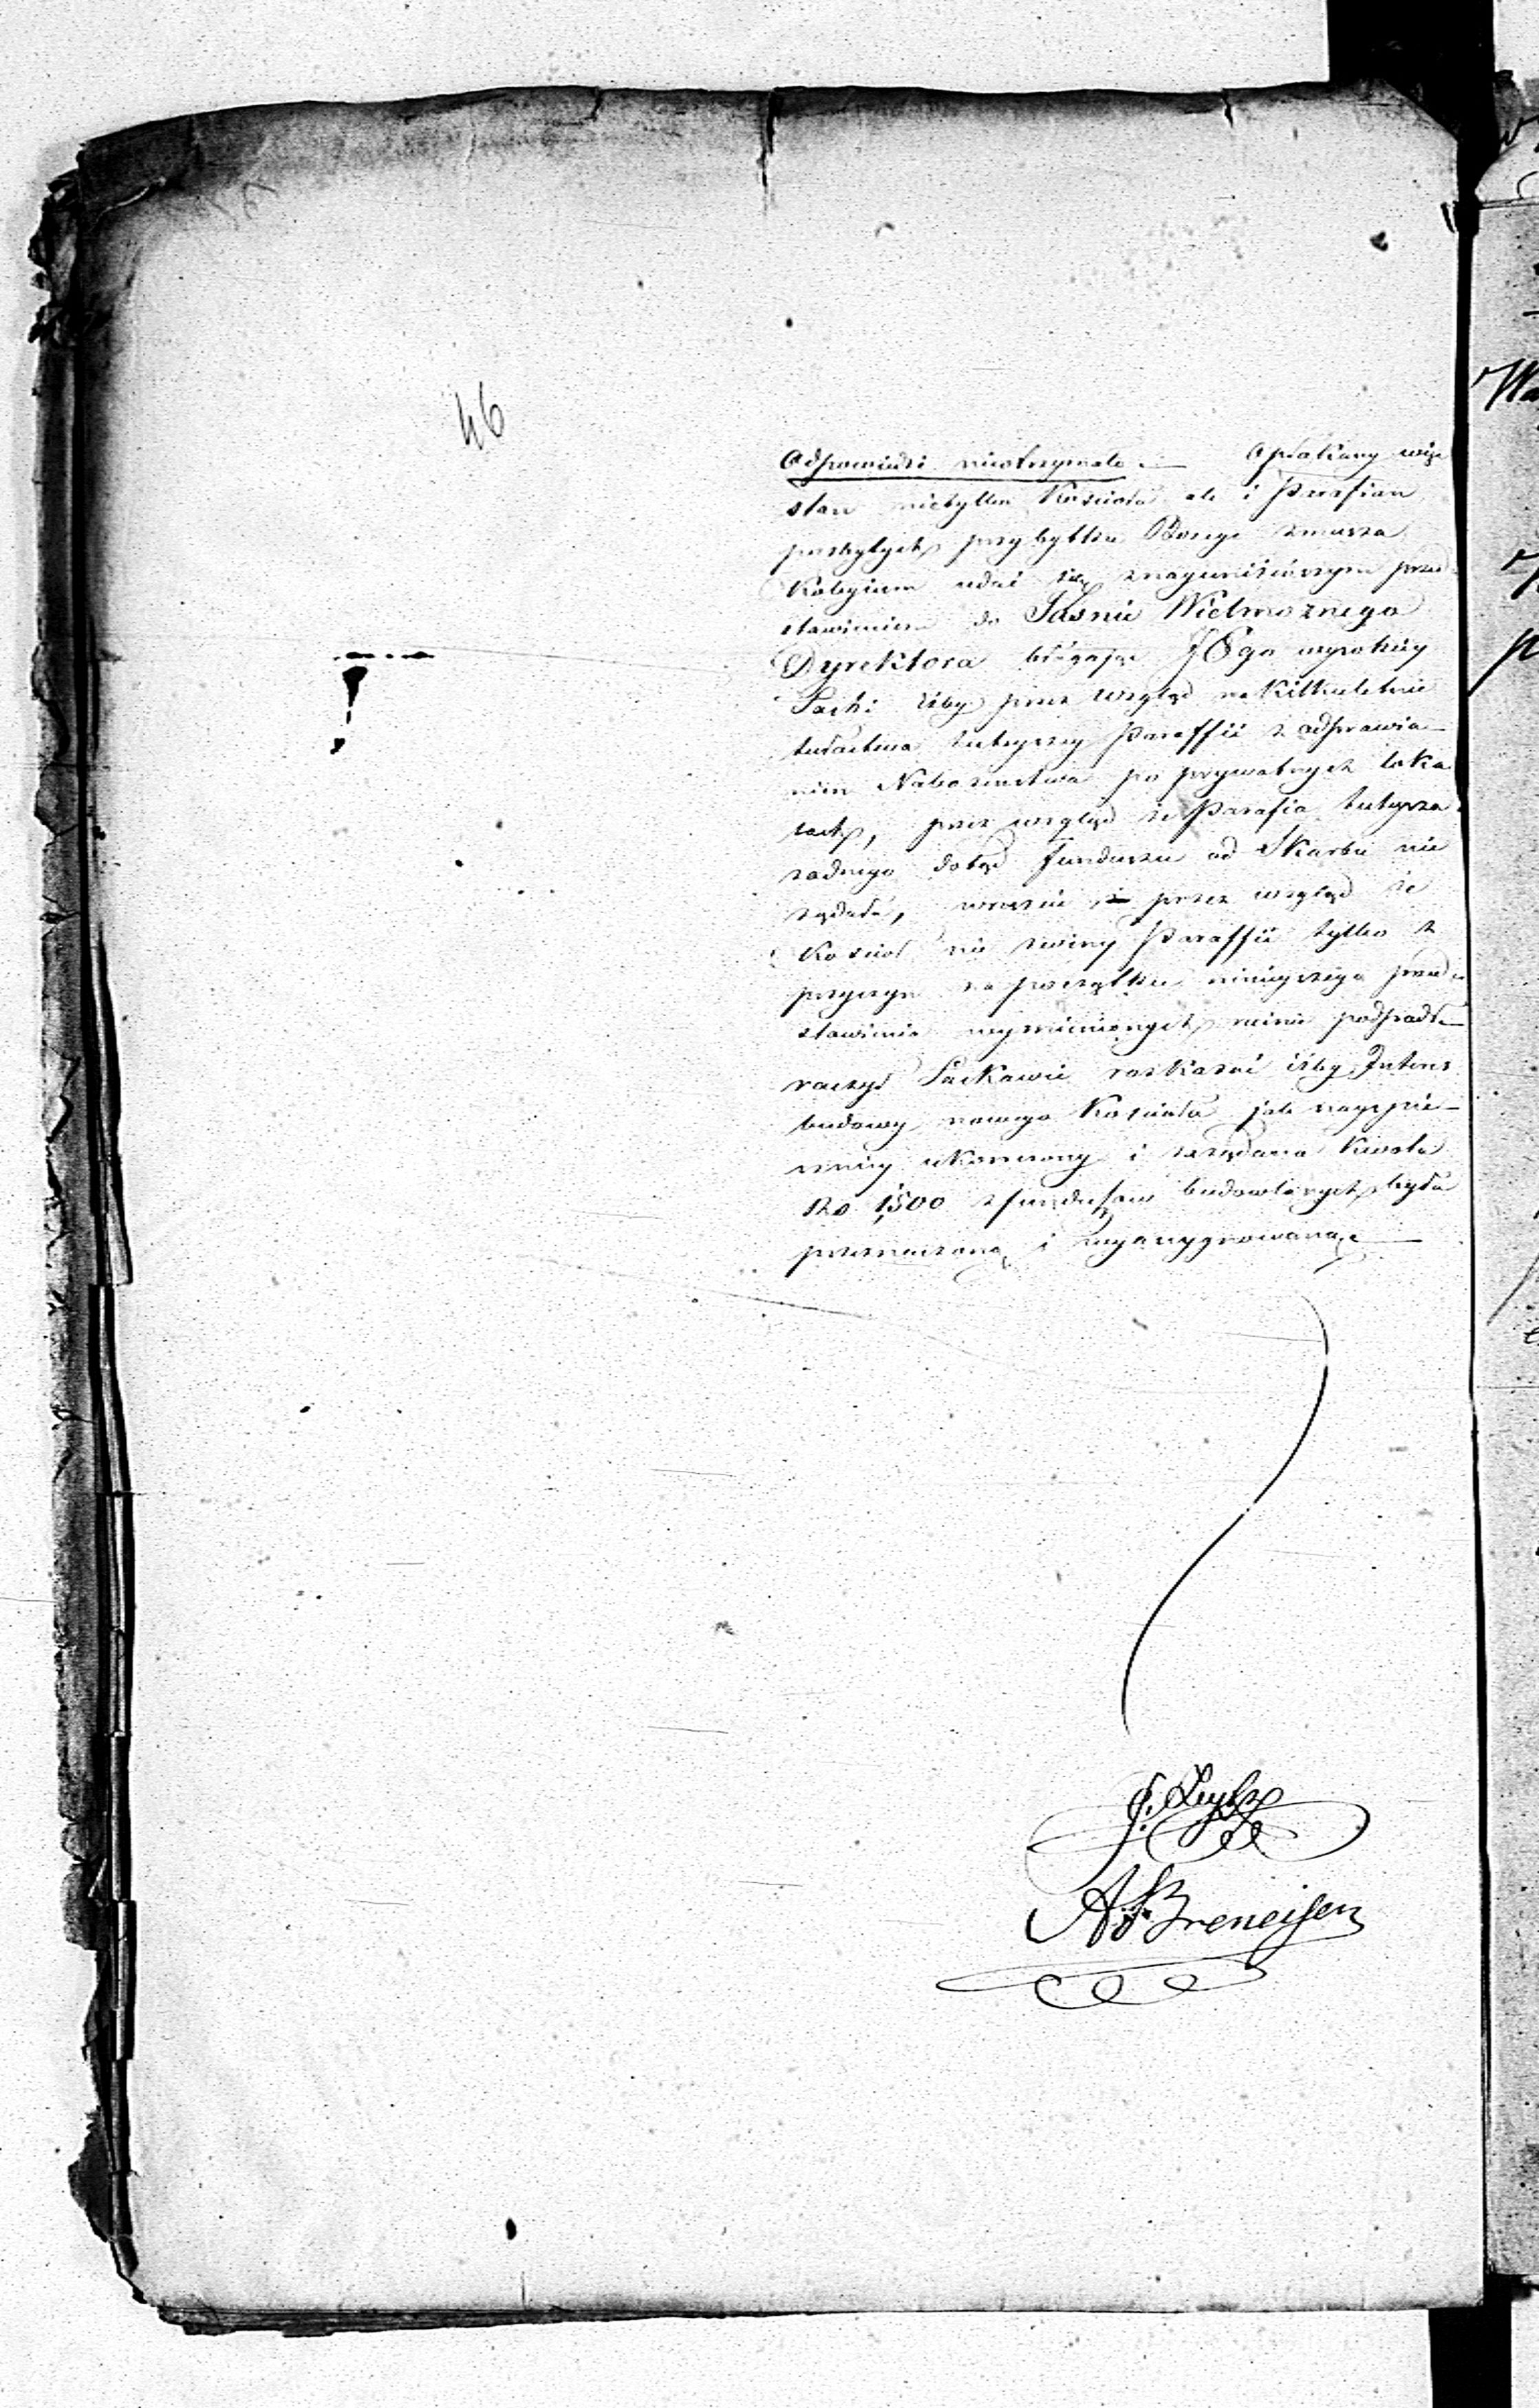 46
Odpowiedzi nieotrzymało. — Opłakany więc
stan nietylko Kościoła ale i Parafian
pozbytych przybytku Bożego zmusza
Kolegium udać się znayuniżeńszym przed
stawieniem do Jaśnie Wielmożnego
Dyrektora błagając JEgo wysokiey
Łaski iżby przez wzgląd na Kilkuletnie
tułactwa tuteyszey Paraffii z odprawia-
niem Nabożeństwa po prywatnych loka
lach, przez wzgląd że Parafia tuteysza
żadnego dotąd funduszu od Skarbu nie
żądała, wreszcie przez wzgląd że
Kościoł nie zwiny Paraffii tylko z
przyczyn na początku ninieyszego przed
stawienia wymienionych ruinie podpadł —
raczył Łaskawie rozkazać iżby Interes
budowy nowego Kościoła jak nayspie-
szniey ukończony i zażądana kwota
Rs 1500 z funduszow budowlanych była
przeznaczoną i wyasygnowaną —
A. F. Breneisen